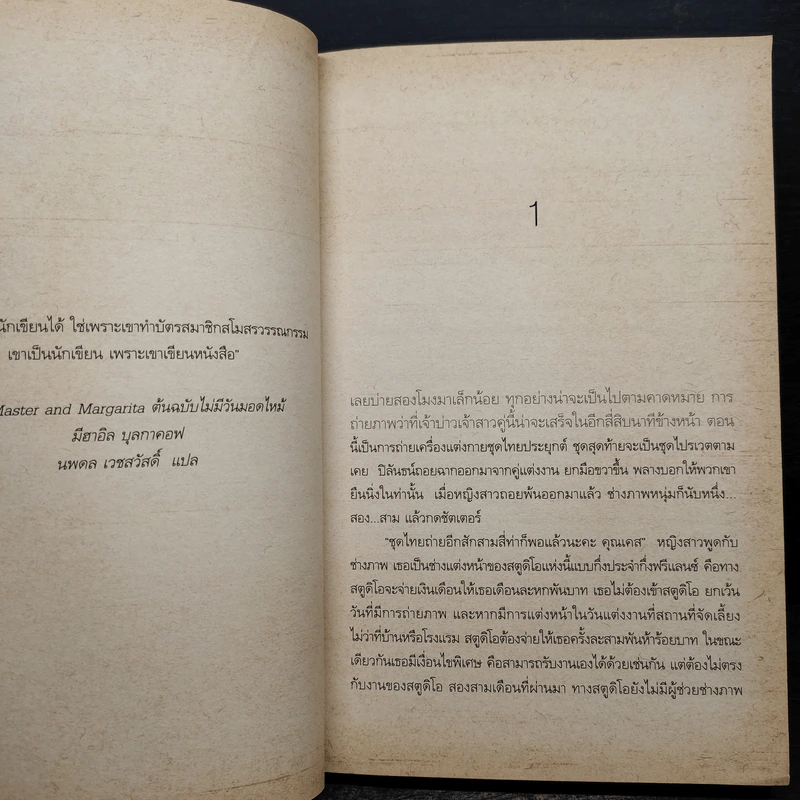 นักเขียนได้ ใช่เพราะเขาทำบัตรสมาชิกสโมสรวรรณกรรม
เขาเป็นนักเขียน เพราะเขาเขียนหนังสือ"
Master and Margarita ต้นฉบับไม่มีวันมอดไหม้
มีฮาอิล บุลกาคอฟ
นพดล เวชสวัสดิ์ แปล
1
เลยบ่ายสองโมงมาเล็กน้อย ทุกอย่างน่าจะเป็นไปตามคาดหมาย การ
ถ่ายภาพว่าที่เจ้าบ่าวเจ้าสาวคู่นี้น่าจะเสร็จในอีกสี่สิบนาทีข้างหน้า ตอน
นี้เป็นการถ่ายเครื่องแต่งกายชุดไทยประยุกต์ ชุดสุดท้ายจะเป็นชุดไปรเวตตาม
เคย ปิลันธน์ถอยฉากออกมาจากคู่แต่งงาน ยกมือขวาขึ้น พลางบอกให้พวกเขา
ยืนนิ่งในท่านั้น เมื่อหญิงสาวถอยพ้นออกมาแล้ว ช่างภาพหนุ่มก็นับหนึ่ง...
สอง...สาม แล้วกดชัตเตอร์
"ชุดไทยถ่ายอีกสักสามสี่ท่าก็พอแล้วนะคะ คุณเคส" หญิงสาวพูดกับ
ช่างภาพ เธอเป็นช่างแต่งหน้าของสตูดิโอแห่งนี้แบบกึ่งประจำกึ่งฟรีแลนซ์ คือทาง
สตูดิโอจะจ่ายเงินเดือนให้เธอเดือนละหกพันบาท เธอไม่ต้องเข้าสตูดิโอ ยกเว้น
วันที่มีการถ่ายภาพ และหากมีการแต่งหน้าในวันแต่งงานที่สถานที่จัดเลี้ยง
ไม่ว่าที่บ้านหรือโรงแรม สตูดิโอต้องจ่ายให้เธอครั้งละสามพันห้าร้อยบาท ในขณะ
เดียวกันเธอมีเงื่อนไขพิเศษ คือสามารถรับงานเองได้ด้วยเช่นกัน แต่ต้องไม่ตรง
กับงานของสตูดิโอ สองสามเดือนที่ผ่านมา ทางสตูดิโอยังไม่มีผู้ช่วยช่างภาพ